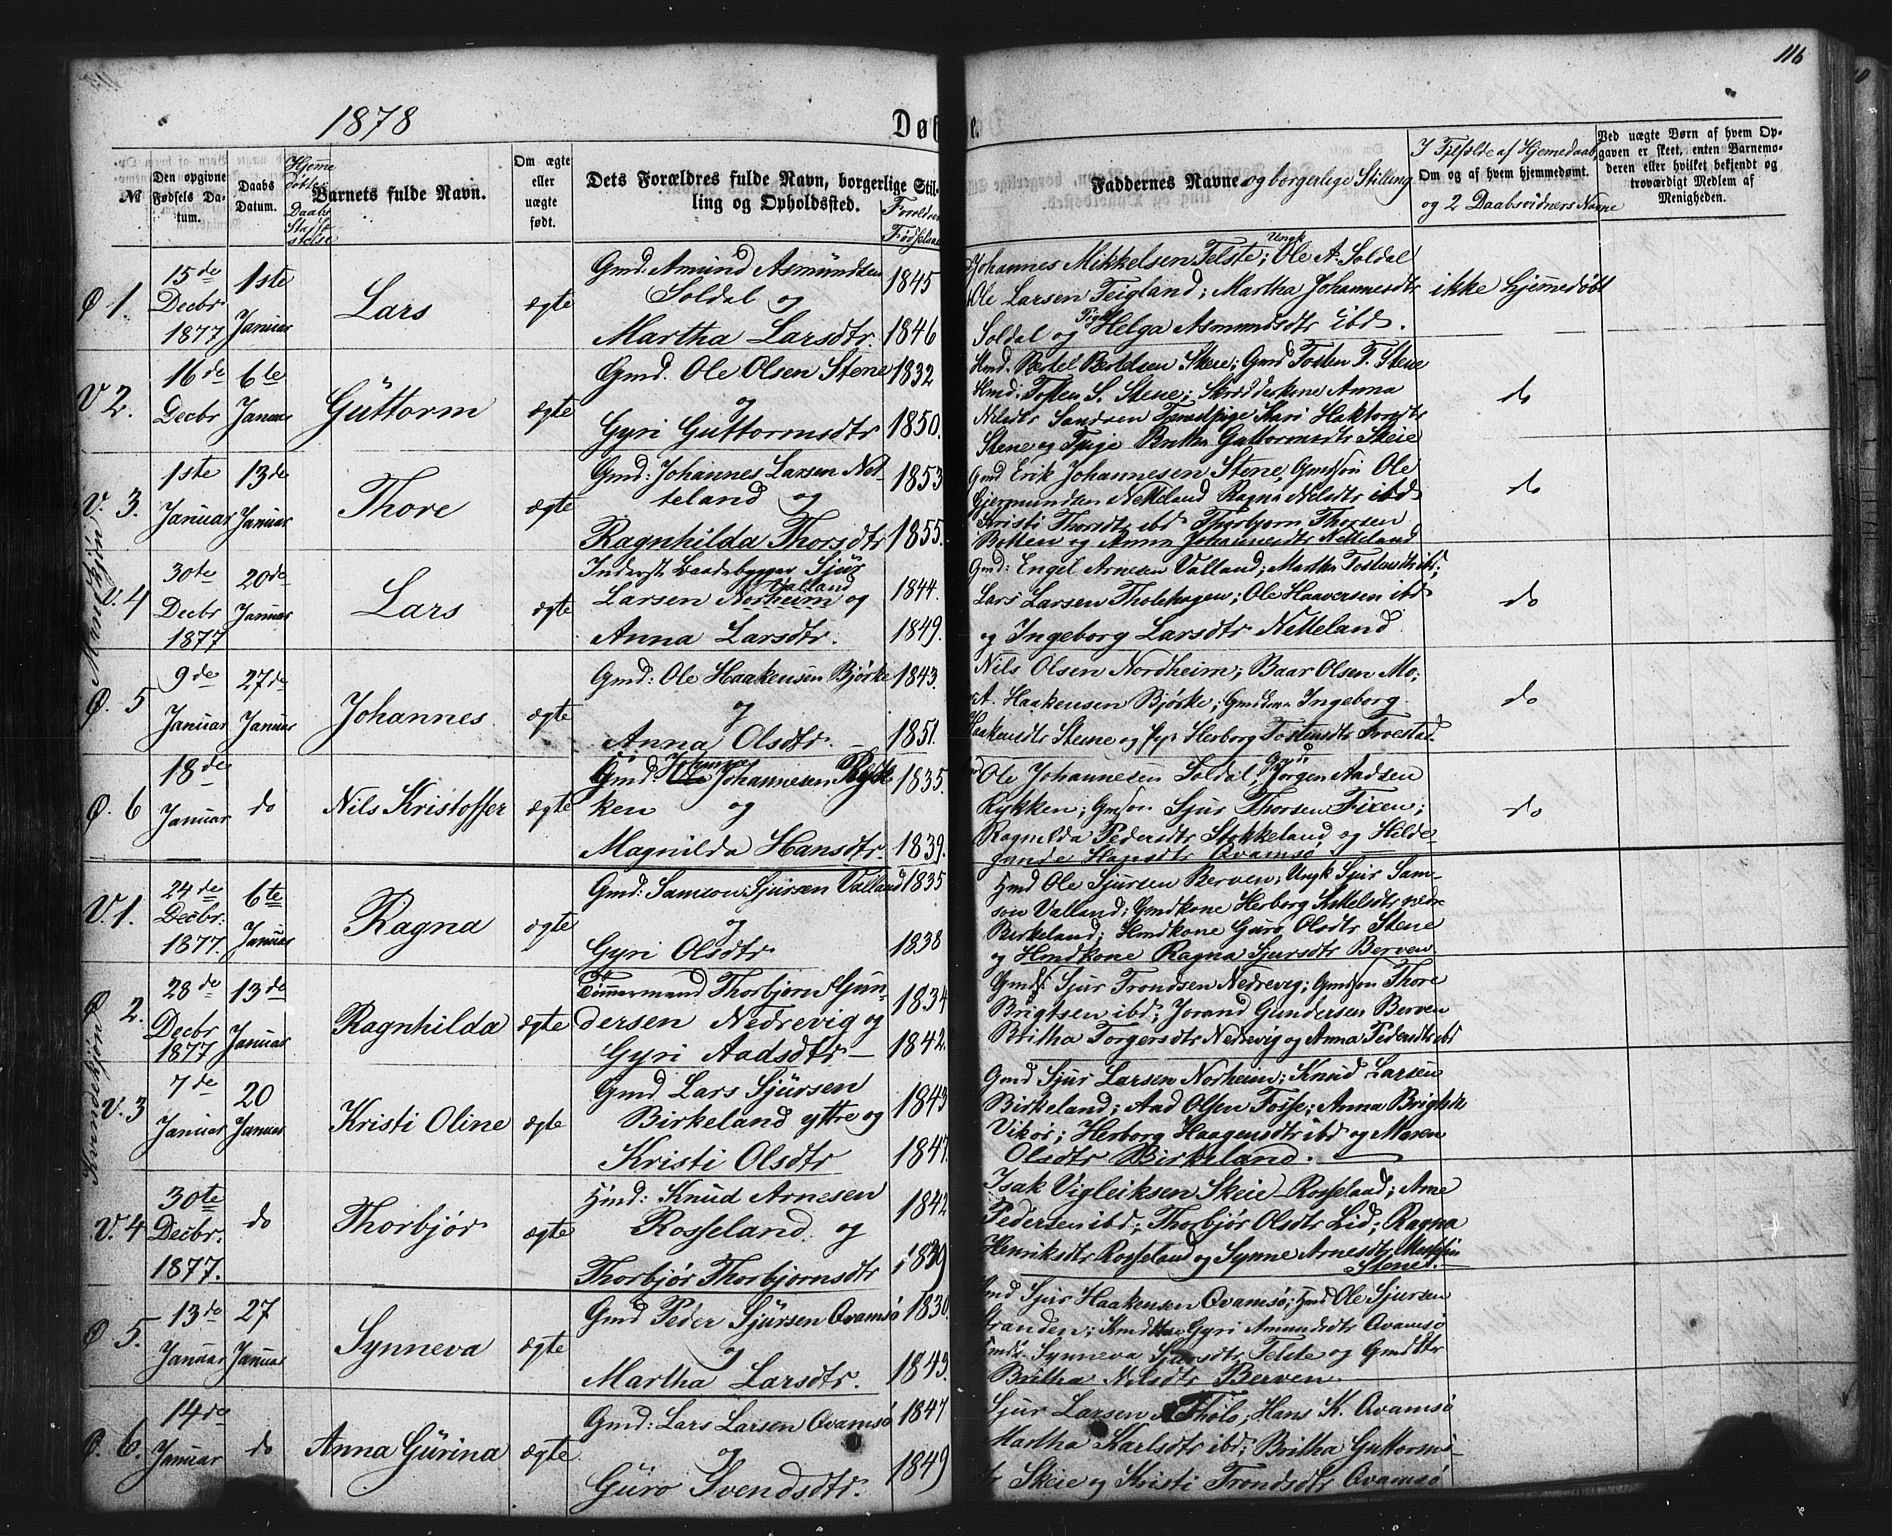 116
1878
Døbte.
№
Den opgivne Fødsels Datum.
Daabs Datum.
Hjemmedøbtes Daabs Stadfæstelse
Barnets fulde Navn.
Om ægte eller uægte født.
Dets Forældres fulde Navn, borgerlige Stilling og Opholdsted.
Forældres Fødselsaar
Faddernes Navne og borgerlige Stilling
I Tilfælde af Hjemmedaab, Om og af hvem hjemmedømt. og 2 Daabsvidners Navne
Ved uægte Børn af hvem Opgaven er skeet, enten Barnemoderen eller hvilket bekjendt og troværdigt Medlem af Menigheden.
Mandkjøn
Ø 1. 15de Decbr 1877 1ste Januar Lars ægte
Gmd: Amund Asmundsen 1845
Soldal og
Martha Larsdtr. 1846
Johannes Mikkelsen Telste; Ungk Ole A. Soldal
Ole Larsen Teigland; Martha Johannesdtr
Soldal og Pige Helga Asmundsdtr ibd.
ikke hjemmedøbt
V 2. 16de Decbr 6te Januar Guttorm ægte
Gmd. Ole Olsen Stene 1832
og
Gyri Guttormsdtr 1850.
Hmd. Bertel Bertelsen Skeie; Gmd Tosten T. Stene
Hmd. Tosten S. Stene; Skrædderkone Anna
Nelsdtr Sandven Pige Mari Haktorsdtr
Stene og Pige Britha Guttormsdtr Skeie
do
V. 3. 1ste Januar 13de Januar Thore ægte
Gmd: Johannes Larsen Net- 1853
teland og
Ragnhilda Thorsdtr 1855.
Gmd Erik Johannesen Stene, Gmdsøn Ole
Gjermundsen Netteland Ragna Nelsdtr ibd
Kristi Thorsdtr ibd Thorbjørn Thorsen
Botten og Anna Johannesdtr Netteland
do
V. 4 30te Decbr 1877 20de Januar Lars ægte
Inderst Baadebygger Sjur
Valland
Larsen Norheim og 1844.
Anna Larsdtr. 1849.
Gmd: Engel Arnesen Valland; Martha Tostensdtr ibd;
Lars Larsen Tholehagen; Ole Haaversen ibd
og Ingeborg Larsdtr Netteland
do
Ø. 5 9de Januar 27de Januar Johannes ægte
Gmd: Ole Haakensen Bjørke 1843.
og
Anna Olsdtr. 1851.
Nils Olsen Nordheim; Baar Olsen Mo;
A. Haakensen Bjørke; Ingeborg
Haakensdtr Stene og Pige Herborg Tostensdtr Frøestad.
do
Ø. 6 18de Januar do Nils Kristoffer ægte
Johannes
Gmd. Ole Johannesen Ryk- 1835.
ken og
Magnilda Hansdtr. 1839.
Ole Johannesen Soldal, Gmd Jørgen Aadsen
Rykken; Gmdsøn Sjur Thorsen Fixen;
Ragnilda Pedersdtr Stokkeland og Hilde-
gunde Hansdtr Qvamsø
do
Kvindekjøn
V. 1. 24de Decbr: 1877. 6te Januar Ragna ægte
Gmd: Samson Sjursen Valland 1835
og
Gyri Olsdtr 1838
Hmd Ole Sjursen Berven; Ungk Sjur Sam-
son Valland; Gmdkone Herborg Ketelsdtr nedre
Birkeland; Hmdkone Guro Olsdtr Stene
og Hmdkone Ragna Sjursdtr Berven
Ø 2. 28de Decbr 1877 13de Januar Ragnhilda ægte
Tømmermand Thorbjørn Gun- 1834
dersen Nedrevig og
Gyri Aadsdtr 1842.
Gmds: Sjur Trondsen Nedrevig; Gmdsøn Thore
Brigtsen ibd; Jorand Gundersen Berven
Britha Torgersdtr Nedrevig og Anna Pedersdtr ibd
V. 3 7de Januar 20 Januar Kristi Oline ægte
Gmd Lars Sjursen 1843
Birkeland yttre og
Kristi Olsdtr 1847.
Gmd Sjur Larsen Norheim; Knud Larsen
Birkeland; Aad Olsen Fosse; Anna Brigtsdtr
Vikør; Herborg Haagensdtr ibd og Maren
Olsdtr Birkeland.
V. 4 30te Decbr. 1877. do Thorbjør ægte
Hmd: Knud Arnesen 1842
Rosseland og
Thorbjør Thorbjørnsdtr 1839
Isak Vigleiksen Skeie Rosseland; Arne
Pedersen ibd; Thorbjør Olsdtr Lid; Ragna
Henriksdtr Rosseland og Synne Arnesdtr
Stene.
Ø 5. 13de Januar 27 Januar Synneva ægte
Gmd Peder Sjursen Qvamsø 1830.
og
Martha Larsdtr. 1843.
Gmd Sjur Haakensen Qvamsø; Hmd Ole Sjursen
Stranden; Hmdkone Gyri Amundsdtr Qvamsø
Synneva Sjursdtr Telste og Gmddtr
Britha Nelsdtr Berven
Ø. 6. 14de Januar do Anna Gurina ægte.
Gmd: Lars Larsen Qvamsø 1847
og
Guro Svendsdtr. 1849
Sjur Larsen Tholo; Hans K. Qvamsø
Martha Karlsdtr ibd; Britha Guttorms-
dtr Skeie og Kristi Trondsdtr Qvamsø